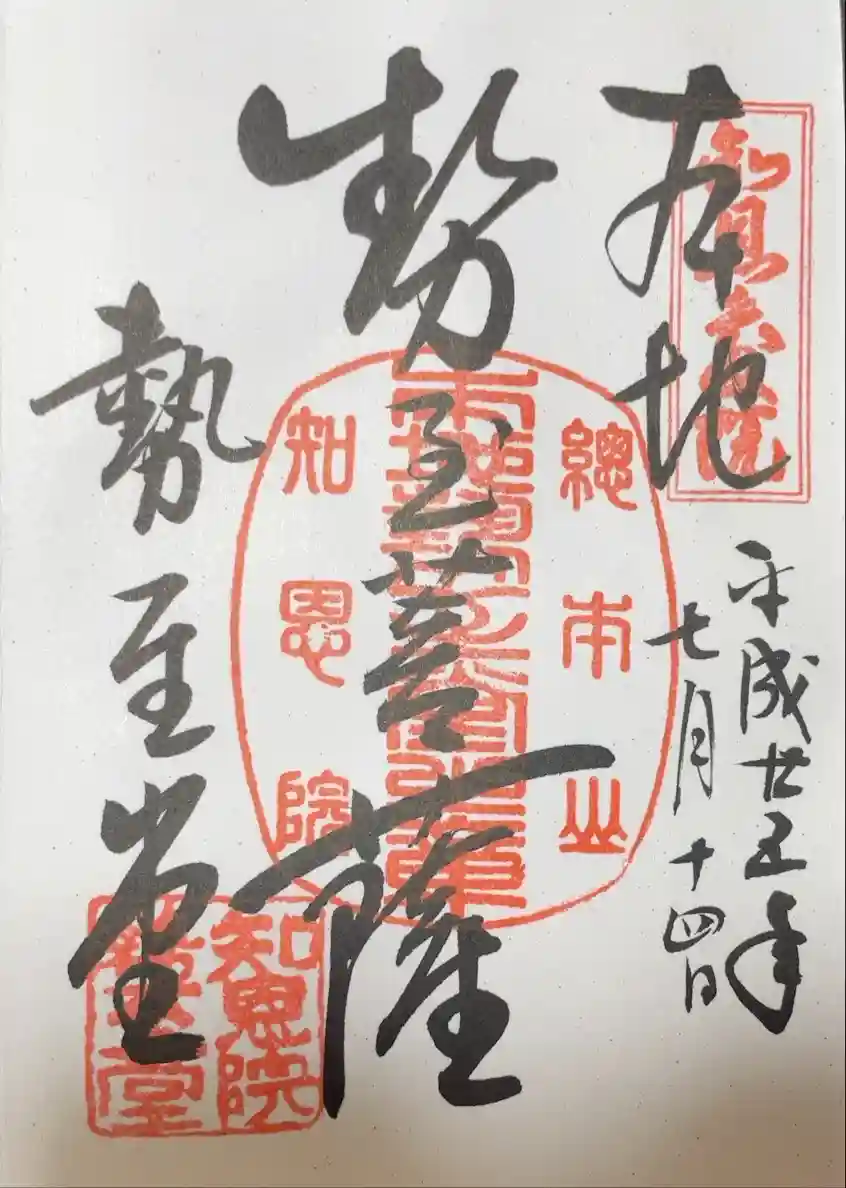 本地
平成廿五年
七月十四日
勢至菩薩
總本山
知恩院
勢至堂
知恩院
勢至堂